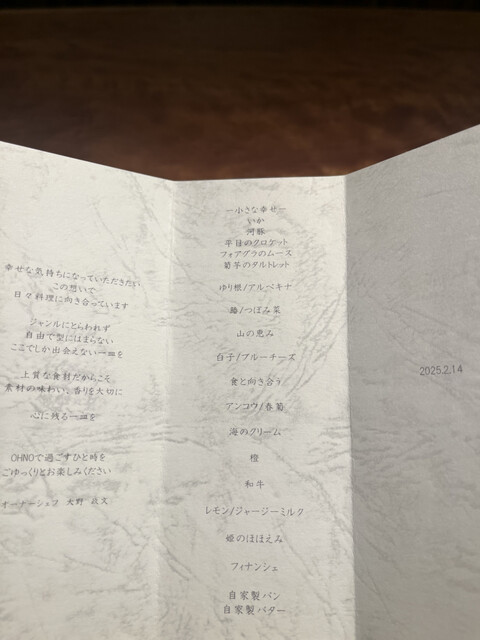 幸せな気持ちになっていただきたい
この想いで
日々料理に向き合っています
ジャンルにとらわれず
自由で型にはまらない
ここでしか出会えない一皿を
上質な食材だからこそ
素材の味わい、香りを大切に
心に残る一皿を
OHNOで過ごすひと時を
ごゆっくりとお楽しみください
オーナーシェフ 大野
ー小さな幸せー
いか
河豚
平目のクロケット
フォアグラのムース
菊芋のタルトレット
ゆり根/アルベキナ
/つぼみ菜
山の恵み
白子/ブルーチーズ
食と向き合う
アンコウ/春菊
海のクリーム
橙
和牛
レモン/ジャージーミルク
姫のほほえみ
フィナンシェ
自家製パン
自家製バター
2025.2.14